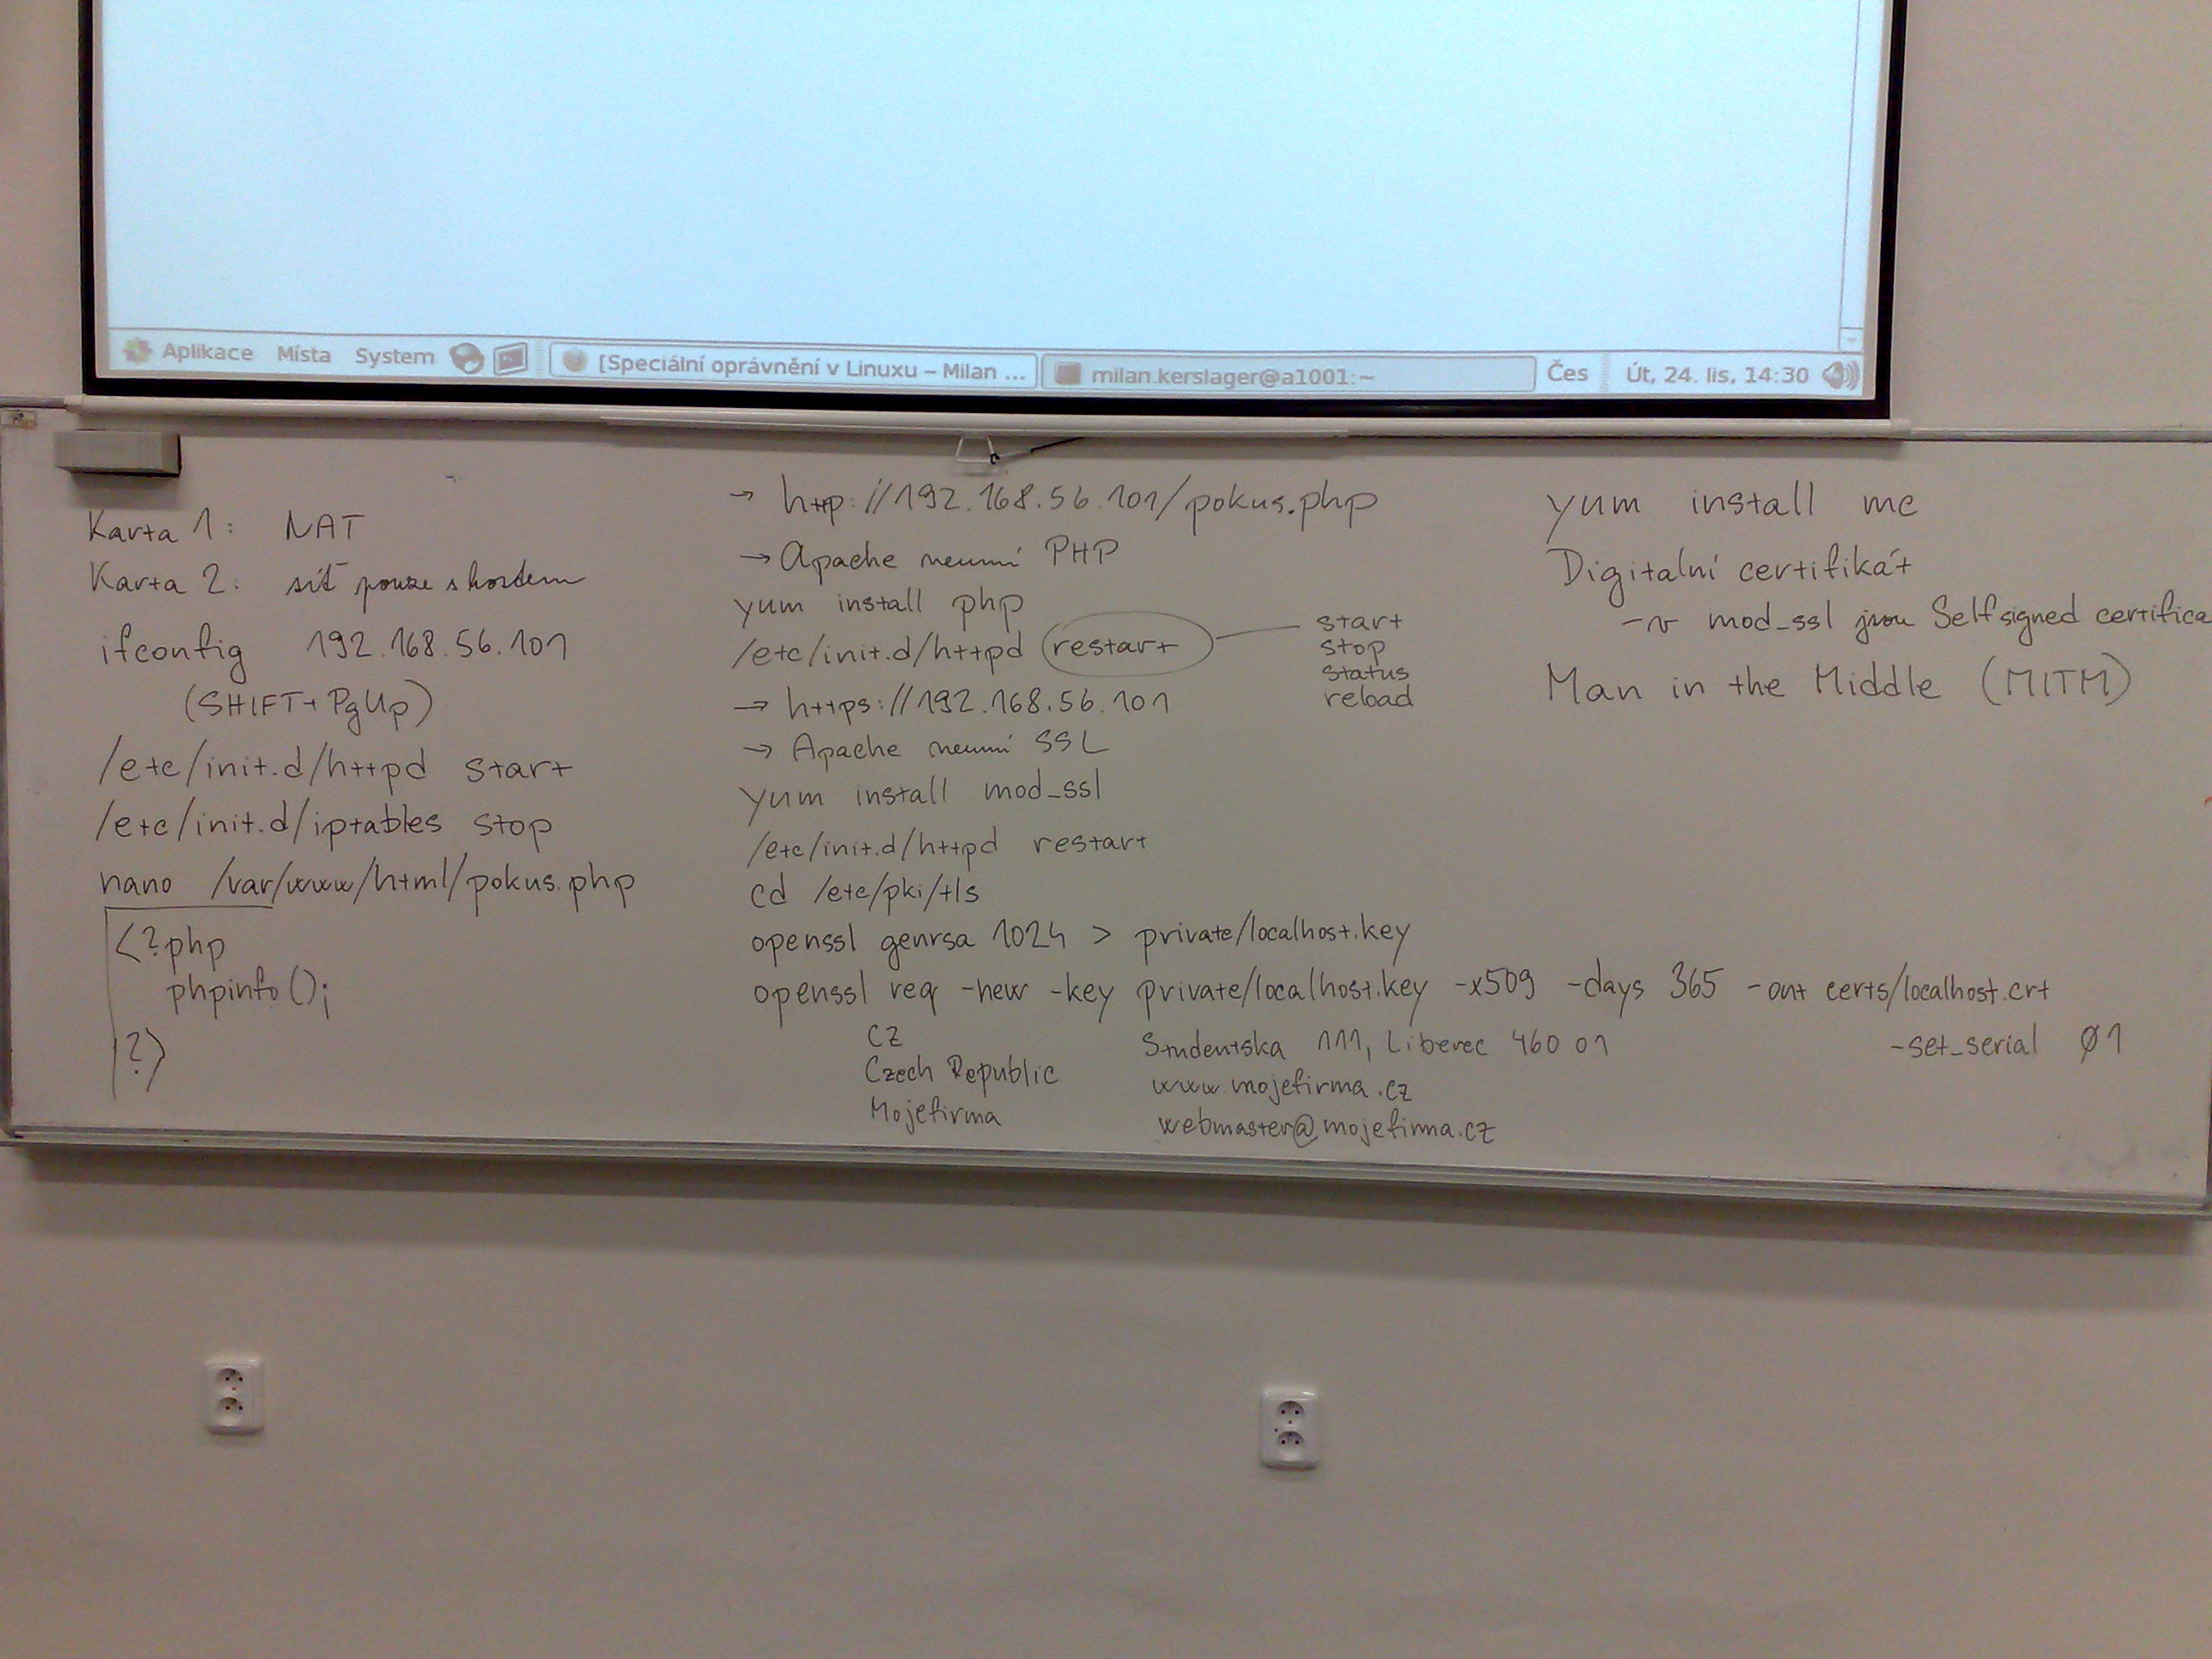 Aplikace Místa System [Speciální oprávnění v Linuxu – Milan ... milan.kerslager@a1001:~ Čes Út, 24. lis, 14:30
Karta 1: NAT
Karta 2: síť pouze s hostem
ifconfig 192.168.56.101
(SHIFT+PgUp)
/etc/init.d/httpd start
/etc/init.d/iptables stop
nano /var/www/html/pokus.php
<?php
phpinfo();
?>
→ http://192.168.56.101/pokus.php
→ Apache neumí PHP
yum install php
/etc/init.d/httpd restart
start
stop
status
reload
→ https://192.168.56.101
→ Apache neumí SSL
yum install mod_ssl
/etc/init.d/httpd restart
cd /etc/pki/tls
openssl genrsa 1024 > private/localhost.key
openssl req -new -key private/localhost.key -x509 -days 365 -out certs/localhost.crt
-set_serial 01
CZ
Czech Republic
Mojefirma
Studentska 111, Liberec 460 01
www.mojefirma.cz
webmaster@mojefirma.cz
yum install mc
Digitalní certifikát
-v mod_ssl jsou Selfsigned certifica
Man in the Middle (MITM)